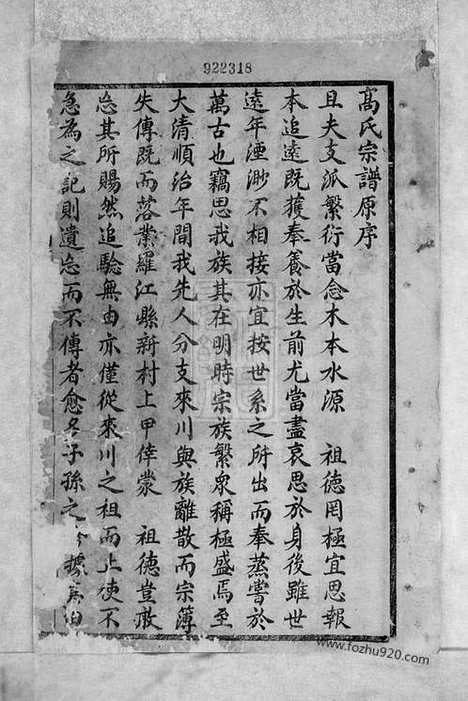 922318
高氏宗譜原序
且夫支派繁衍當念木本水源　祖德罔極宜思報
本追遠既獲奉養於生前尤當盡哀思於身後雖世
遠年湮渺不相接亦宜按世系之所出而奉蒸嘗於
萬古也竊思我族其在明時宗族繁衆稱極盛焉至
大清順治年間我先人分支來川與族離散而宗簿
失傳既而落業羅江縣新村上甲倖蒙　祖德豈敢
忘其所賜然追驗無由亦僅從來川之祖而上使不
急為之記則遺忘而不傳者愈多子孫之
www.fozhu920.com